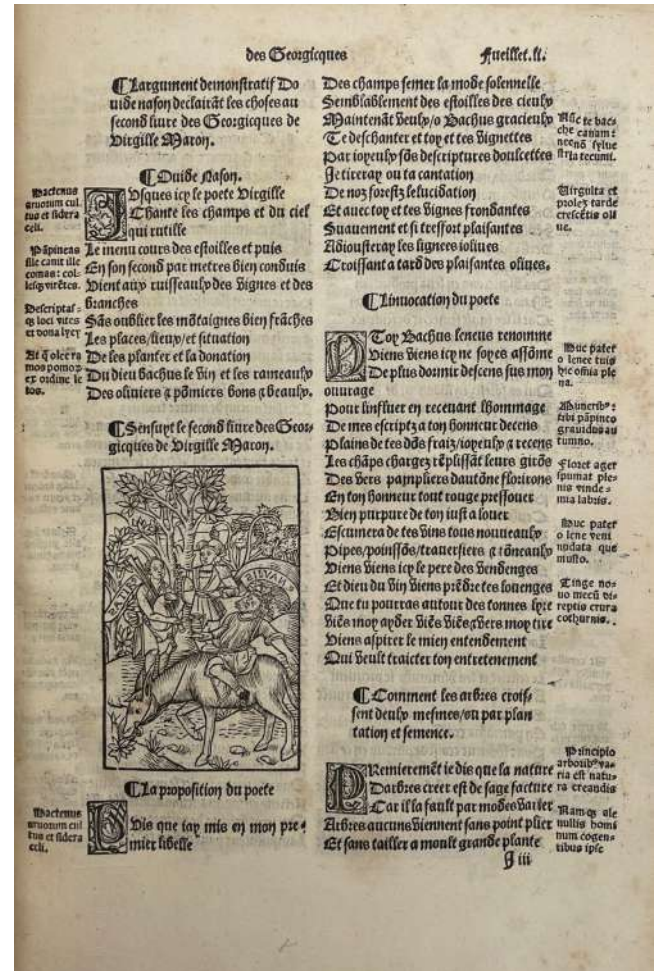 des Georgicques
Fueillet.li.
¶Largument demonstratif Do
uide nason declairãt les choses au
second liure des Georgicques de
Virgille Maron.
¶Ouide Nason.
Hactenus
aruorum cul
tus et sidera
celi.
Iusques icy le poete Virgille
Chante les champs et du ciel
qui rutille
Le menu cours des estoilles et puis
En son second par metres bien conduis
Vient aux ruisseaulx des vignes et des
branches
Sãs oublier les mõtaignes bien frãches
Les places/lieux/et situation
De les planter et la donation
Du dieu bachus le vin et les rameaulx
Des oliuiers & põmiers bons & beaulx.
Pãpineas
ille canit ille
comas: col-
lesq̃ virẽtes.
Descriptas-
q̃ loci vites
et dona lyęi
At q̃ oleę ra
mos pomoꝝ
ex ordine le
tos.
¶Sensuyt le second liure des Geor-
gicques de Virgille Maron.
¶La proposition du poete
Hactenus
aruorum cul
tus et sidera
celi.
Puis que iay mis en mon pre-
mier libelle
Des champs semer la mode solennelle
Semblablement des estoilles des cieulx
Maintenãt veulx/o Bachus gracieulx
Te deschanter et toy et tes vignettes
Par ioyeulx sõs descriptures doulcettes
Je tireray ou ta cantation
De noz forestz lelucidation
Et auec toy et tes vignes frondantes
Suauement et si tresfort plaisantes
Adiousteray les lignees iolïues
Croissant a tard des plaisantes oliues.
Nũc te bac-
che canam:
necnõ sylue
stria tecum.
Virgulta et
prolez tarde
crescẽtis oli
ue.
¶Linuocation du poete
O Toy Bachus leneus renomme
Viens viens icy ne soyes assõme
De plus dormir descens sus mon
ouurage
Pour linfluer en receuant lhommage
De mes escriptz a ton honneur decens
Plains de tes dõs fraiz/ioyeulx & recens
Les chãps chargez rẽplissãt leurs girõs
Des vers pampliers dautõne floritons
En ton honneur tout rouge pressouer
Bien purpure de ton iust a louer
Escumera de tes vins tous nouueaulx
Pipes/poinssõs/trauersiers & tõneaulx
Viens viens icy le pere des vendenges
Et dieu du vin viens prẽdre tes louenges
Que tu pourras autour des tonnes lyre
Viẽs moy ayder viẽs viẽs & vers moy tire
Viens aspirer le mien entendement
Qui veult traicter ton entretenement
Huc pater
o lenee tuis
hic oĩnia ple
na.
Muneribꝰ:
tibi pãpineo
grauidus au
tumno.
Floret ager
spumat ple-
nis vinde-
mia labris.
Huc pater
o lene veni
nudata que
musto.
Tinge no-
uo mecũ di-
reptis crura
cothurnis.
¶Comment les arbres crois-
sent deulx mesmes/ou par plan
tation et semence.
PRemieremẽt ie dis que la nature
Darbres creer est de sage facture
Car il la fault par modes varier
Arbres aucuns viennent sans point plier
Et sans tailler a moult grande plante
Principio
arboribꝰ va-
ria est natu-
ra creandis
Namq̃ ale
nullis homi
num cogen-
tibus ipse
J iii